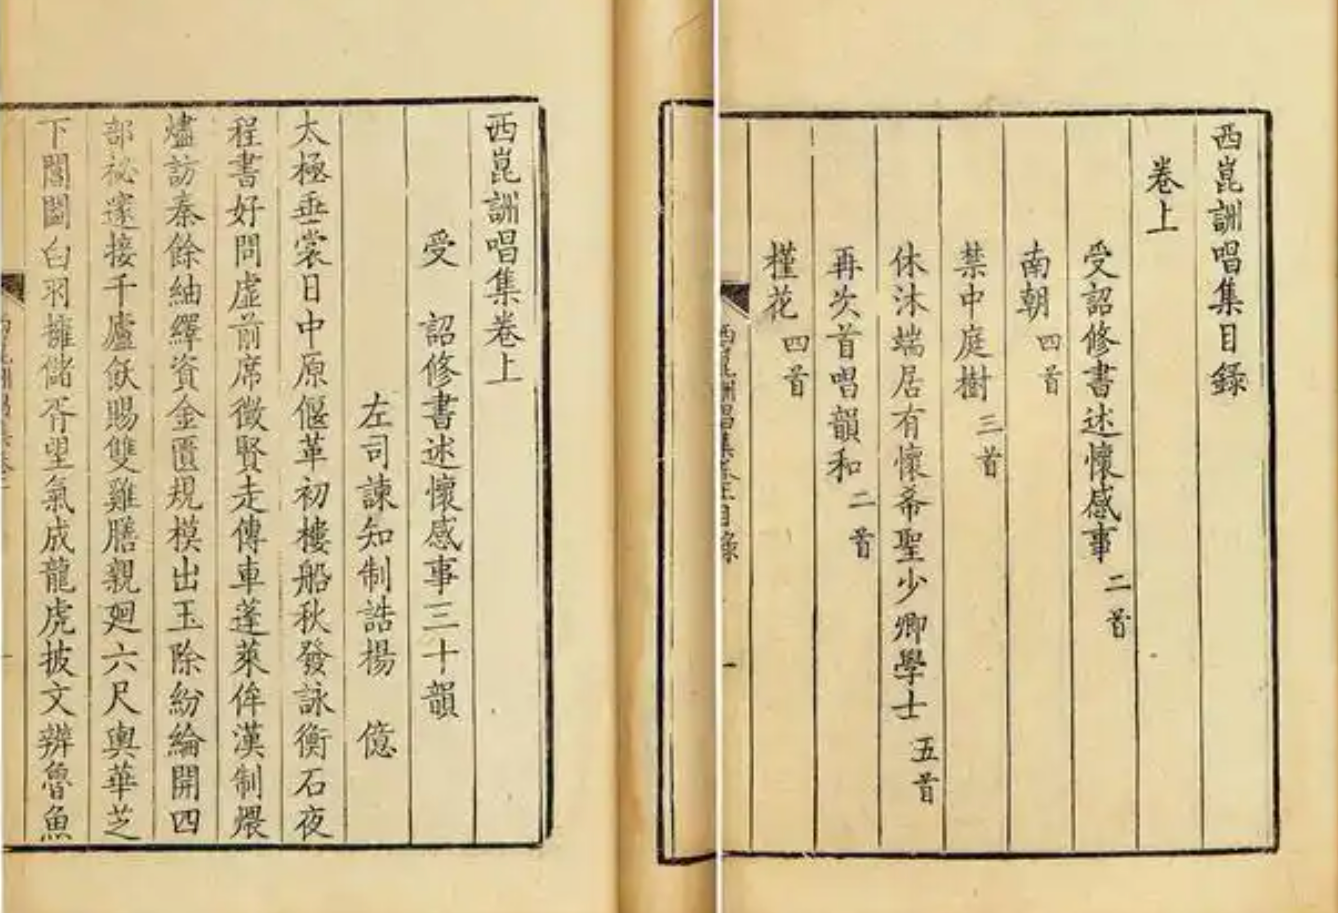 西崑詶唱集目錄
卷上
受詔修書述懷感事 二首
南朝 四首
禁中庭樹 三首
休沐端居有懷希聖少卿學士 五首
再次首唱韻和 二首
槿花 四首
西崑詶唱集卷上目錄 一
西崑詶唱集卷上
受 詔修書述懷感事三十韻
左司諫知制誥楊 億
太極垂裳日中原偃革初樓船秋發詠衡石夜
程書好問虛前席徵賢走傳車蓬萊侔漢制煨
燼訪秦餘紬繹資金匱規模出玉除紛綸開四
部祕邃接千廬飫賜雙雞膳親廻六尺輿華芝
下閶闔白羽擁儲胥望氣成龍虎披文辨魯魚